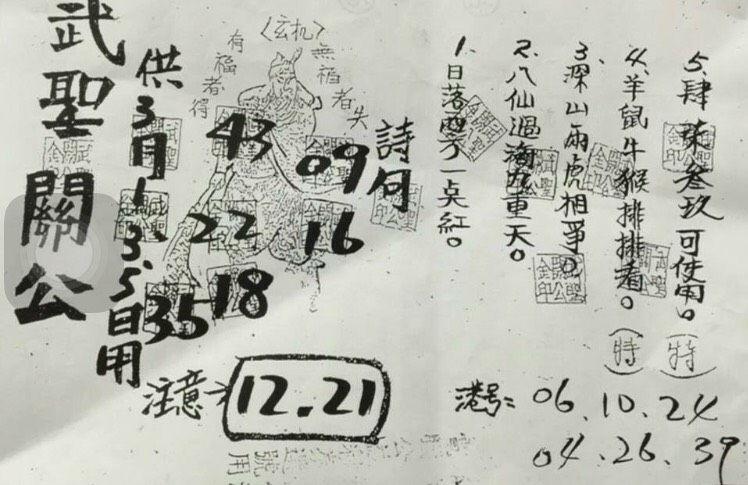 武聖關公
供3月1.3.5日用
〈玄机〉
有福者得
無福者失
詩句
43
09
22
16
18
35
注意
12.21
1.日落西方一点紅。
2.八仙過海九重天。
3.深山兩虎相爭。
4.羊鼠牛猴排排看。(特)
5.肆柒叁玖可使用。(特)
港号:06.10.24
04.26.39